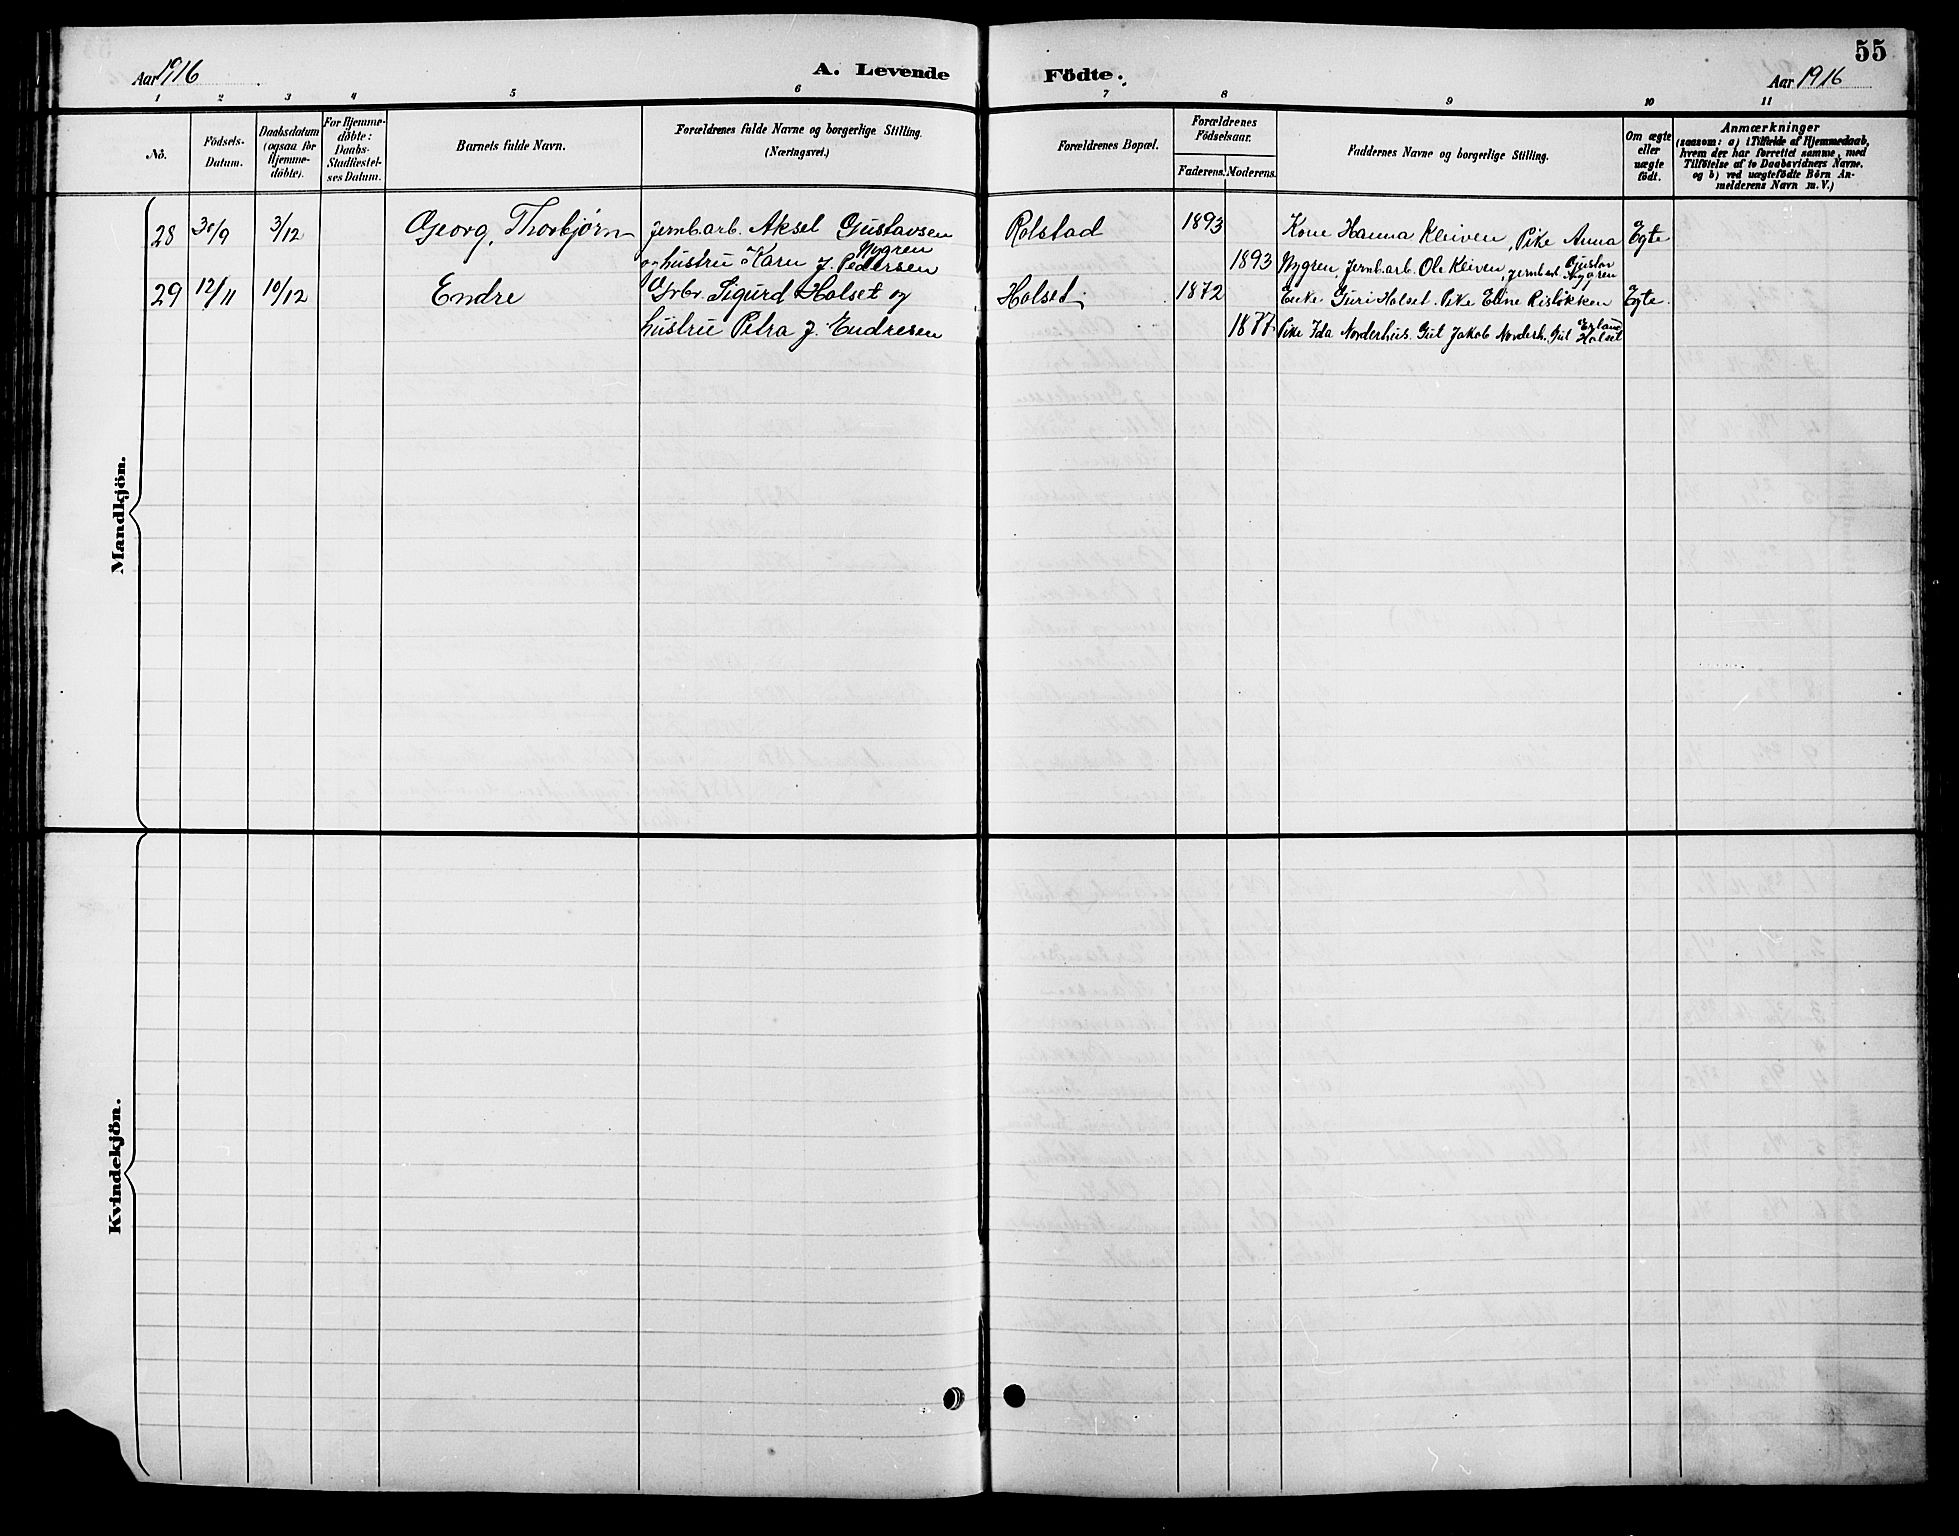 55
Aar 1916
A. Levende
Födte.
Aar 1916
1 2 3 4 5 6 7 8 9 10 11
No.
Födsels-
Datum.
Daabsdatum
(ogsaa for
Hjemme-
döbte).
For Hjemme-
döbte:
Daabs-
Stadfæstel-
ses Datum.
Barnets fulde Navn.
Forældrenes fulde Navne og borgerlige Stilling.
(Næringsvei.)
Forældrenes Bopæl.
Forældrenes
Födselsaar.
Faderens. Moderens.
Faddernes Navne og borgerlige Stilling.
Om ægte
eller
uægte
födt.
Anmærkninger
(saasom: a) i Tilfælde af Hjemmedaab,
hvem der har forrettet samme, med
Tilföielse af to Daabsvidners Navne.
og b) ved uægtefödte Börn An-
melderens Navn m. V.)
Mandkjön.
28 30/9 3/12 Georg, Thorbjørn jernb.arb. Aksel Gustavsen Rolstad 1893 Kone Hanna Kleiven, Pike Anna Egte
Nygren
og hustru Karn f. Pedersen 1893 Nygren, Jernb.arb. Ole Kleiven, jernbarb. Gustav
Nygren
29 12/11 10/12 Endre Grbr. Sigurd Holset og Holset 1872 Enke Guri Holset. Pike Eline Risløkken Egte.
hustru Petra f. Endresen 1877 Pike Ida Norderhus. Gut Jakob Norderh. Gut Erland
Holset
Kvindekjön.